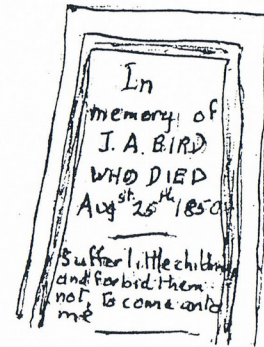 In
memory of
J. A. BIRD
WHO DIED
Augst 25th 1850
Suffer little children
and forbid them
not, to come unto
me